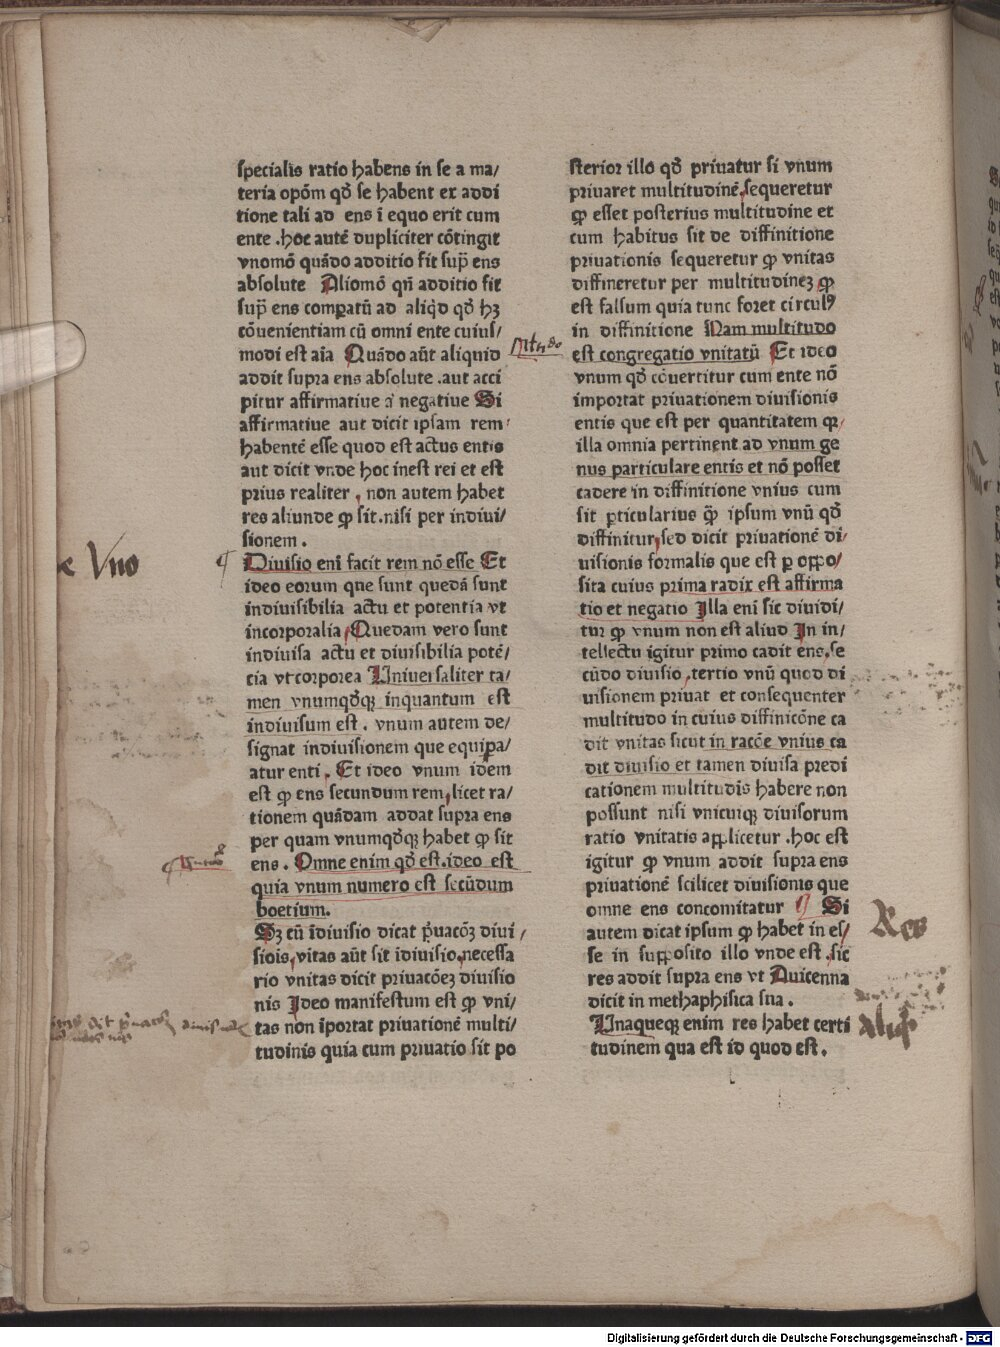 specialis ratio habens in se a ma/
teria opōm qđ se habent ex addi
tione tali ad ens ī equo erit cum
ente .hoc autē dupliciter cōtingit
vnomō quādo additio fit sup̄ ens
absolute Aliomō qn̄ additio fit
sup̄ ens compatū ad aliq̇d qđ hꝫ
cōuenientiam cū omni ente cuius/
modi est aīa Quādo aūt aliquid
addit supra ens absolute .aut acci
pitur affirmatiue aī negatiue Si
affirmatiue aut dicit ipsam rem
habentē esse quod est actus entis
aut dicit vnde hoc inest rei et est
prius realiter , non autem habet
res aliunde ꝙ sit.nisi per indiui/
sionem .
Diuisio enī facit rem nō esse Et
ideo eorum que sunt quedā sunt
indiuisibilia actu et potentia vt
incorporalia Quedam vero sunt
indiuisa actu et diuisibilia potē/
cia vt corporea Uniuersaliter ta/
men vnumqđqꝫ inquantum est
indiuisum est . vnum autem de/
signat indiuisionem que equipa/
atur enti . Et ideo vnum idem
est ꝙ ens secundum rem, licet ra/
tionem quādam addat supra ens
per quam vnumqđqꝫ habet ꝙ sit
ens . Omne enim qđ est.ideo est
quia vnum numero est secūdum
boetium.
Sꝫ cū īdiuisio dicat p̄uacōꝫ diui
siois, vitas aūt sit īdiuisio,necessa
rio vnitas dicit priuacōeꝫ diuisio
nis Ideo manifestum est ꝙ vni/
tas non īportat priuationē multi/
tudinis quia cum priuatio sit po
sterior illo qđ priuatur si vnum
priuaret multitudinē,sequeretur
ꝙ esset posterius multitudine et
cum habitus sit de diffinitione
priuationis sequeretur ꝙ vnitas
diffineretur per multitudineꝫ ꝙ
est falsum quia tunc foret circulꝰ
in diffinitione Nam multitudo
est congregatio vnitatū Et ideo
vnum qđ cōuertitur cum ente nō
importat priuationem diuisionis
entis que est per quantitatem qꝛ
illa omnia pertinent ad vnum ge
nus particulare entis et nō posset
cadere in diffinitione vnius cum
sit ꝑticularius q̄ꝫ ipsum vnū qđ
diffinitur,sed dicit priuationē di/
uisionis formalis que est ꝑ oppo/
sita cuius prima radix est affirma
tio et negatio Illa enī sic diuidi/
tur ꝙ vnum non est aliud In in/
tellectu igitur primo cadit ens,se
cūdo diuisio,tertio vnū quod di
uisionem priuat et consequenter
multitudo in cuius diffinicōne ca
dit vnitas sicut in racōe vnius ca
dit diuisio et tamen diuisa predi
cationem multitudīs habere non
possunt nisi vnicuiqꝫ diuisorum
ratio vnitatis applicetur .hoc est
igitur ꝙ vnum addit supra ens
priuationē scilicet diuisionis que
omne ens concomitatur Si
autem dicat ipsum ꝙ habet in es/
se in supposito illo vnde est .sic
res addit supra ens vt Auicenna
dicit in methaphisica sua .
Unaqueqꝫ enim res habet certi
tudinem qua est id quod est .
Vno
Res
Digitalisierung gefördert durch die Deutsche Forschungsgemeinschaft - DFG